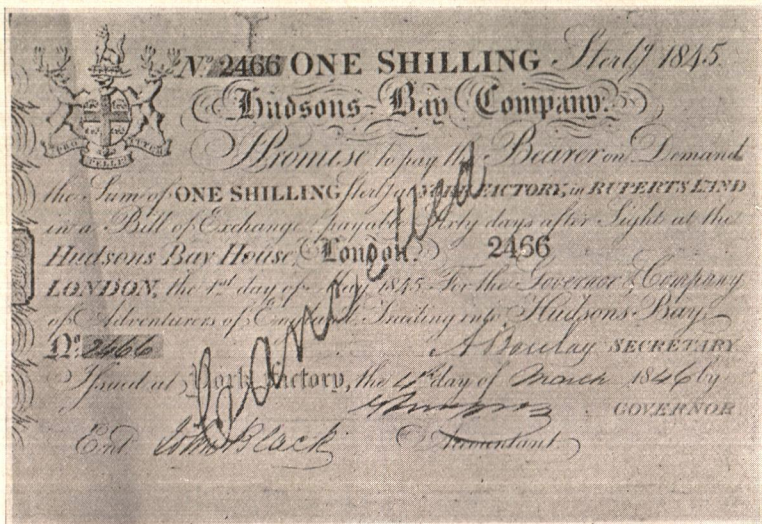 No. 2466 ONE SHILLING Sterlg 1845.
Hudsons-Bay Company.
PRO PELLE CUTEM
I Promise to pay the Bearer on Demand
the Sum of ONE SHILLING Sterlg at YORK FACTORY, in RUPERTS LAND
in a Bill of Exchange payable Sixty days after Sight at the
Hudsons Bay House, London. 2466
LONDON, the 1st day of May 1845. For the Governor & Company
of Adventurers of England Trading into Hudsons Bay.
No. 2466 A Barclay SECRETARY
Issued at York Factory, the 4th day of March 1846 by
GOVERNOR
Entd John Black Accountant
Cancelled